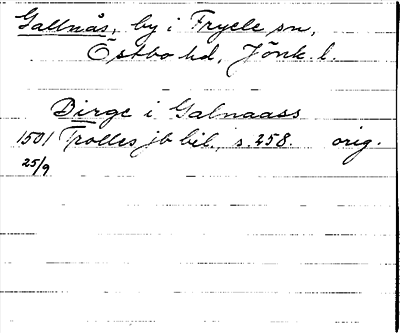 Gallnås, by i Fryele sn,
Östbo hd, Jönk. l.
Birge i Galnaass
1501 Trolles jb bil., s. 258. orig.
25/9